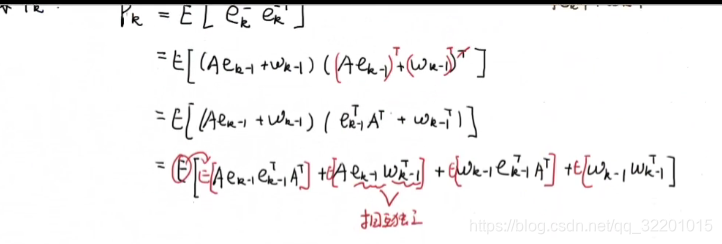 P_k^- = E[e_k^- e_k^{-T}]
= E[(Ae_{k-1} + w_{k-1})((Ae_{k-1})^T + (w_{k-1})^T)]
= E[(Ae_{k-1} + w_{k-1})(e_{k-1}^T A^T + w_{k-1}^T)]
= E[E[Ae_{k-1} e_{k-1}^T A^T] + E[Ae_{k-1} w_{k-1}^T] + E[w_{k-1} e_{k-1}^T A^T] + E[w_{k-1} w_{k-1}^T]
相互独立
https://blog.csdn.net/qq_32201015